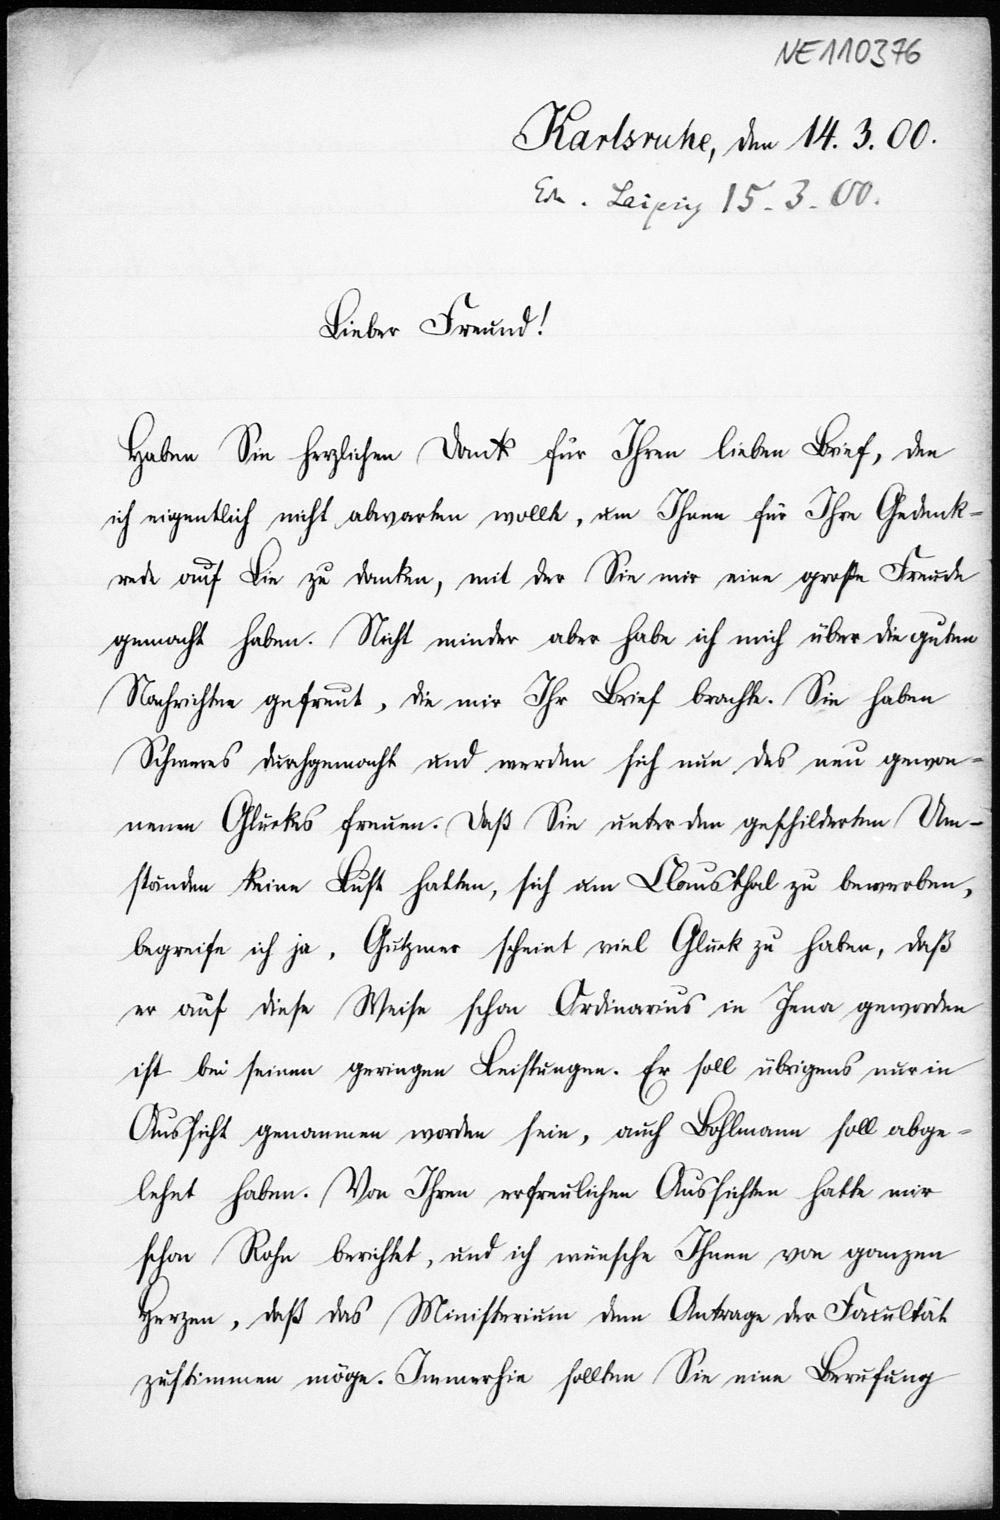 NE110376
Karlsruhe, den 14. 3. 00.
Leipzig 15. 3. 00.
Lieber Freund!
Haben Sie herzlichen Dank für Ihren lieben Brief, den
ich eigentlich nicht abwarten wollte, um Ihnen für Ihre Gedenk-
rede auf Lie zu danken, mit der Sie mir eine große Freude
gemacht haben. Nicht minder aber habe ich mich über die guten
Nachrichten gefreut, die mir Ihr Brief brachte. Sie haben
Schweres durchgemacht und werden sich nun des neu gewon-
nenen Glückes freuen. Daß Sie unter den geschilderten Um-
ständen keine Lust hatten, sich um Clausthal zu bewerben,
begreife ich ja, Gutzmer scheint viel Glück zu haben, daß
er auf diese Weise schon Ordinarius in Jena geworden
ist bei seinen geringen Leistungen. Er soll übrigens nur in
Aussicht genommen worden sein, auch Bohlmann soll abge-
lehnt haben. Von Ihren erfreulichen Aussichten hatte mir
schon Rohn berichtet, und ich wünsche Ihnen von ganzem
Herzen, daß das Ministerium dem Antrage der Facultät
zustimmen möge. Immerhin sollten Sie eine Berufung